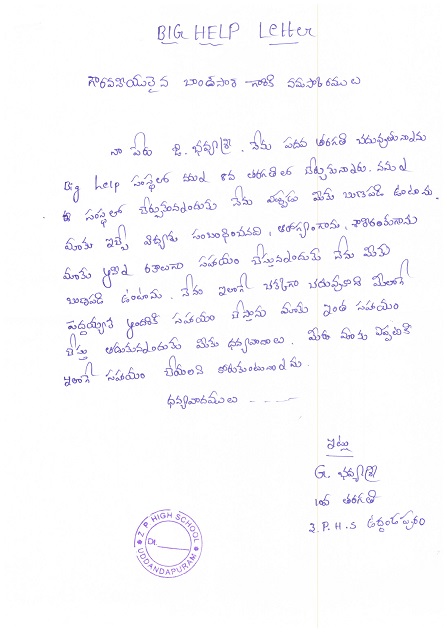 BIG HELP Letter
గౌరవనీయులైన చాంద్‌పాషా గారికి నమస్కారములు
నా పేరు జి. భవ్యశ్రీ. నేను పదవ తరగతి చదువుతున్నాను
Big help సంస్థలో నన్ను 8వ తరగతి లో చేర్చుకున్నారు. నన్ను
ఈ సంస్థలో చేర్చుకున్నందుకు నేను ఎప్పుడు మీకు ఋణపడి ఉంటాను.
మాకు ఇచ్చే విద్యకు సంబంధించినవి, ఆరోగ్యంగాను,
మాకు అన్ని రకాలుగా సహాయం చేస్తున్నందుకు నేను మీకు
ఋణపడి ఉంటాను. నేను ఇలాగే చక్కగా చదువుకొని మీలాగే
పెద్దయ్యాక అందరికి సహాయం చేస్తాను మాకు ఇంత సహాయం
చేస్తు ఆదుకున్నందుకు మీకు ధన్యవాదాలు. మీరు మాకు ఎప్పటికి
ఇలాగే సహాయం చేయాలని కోరుకుంటున్నాను.
ధన్యవాదములు
ఇట్లు
G. భవ్యశ్రీ
10వ తరగతి
Z.P.H.S ఉద్దండపురం
Z.P. HIGH SCHOOL
Dt.
UDDANDAPURAM